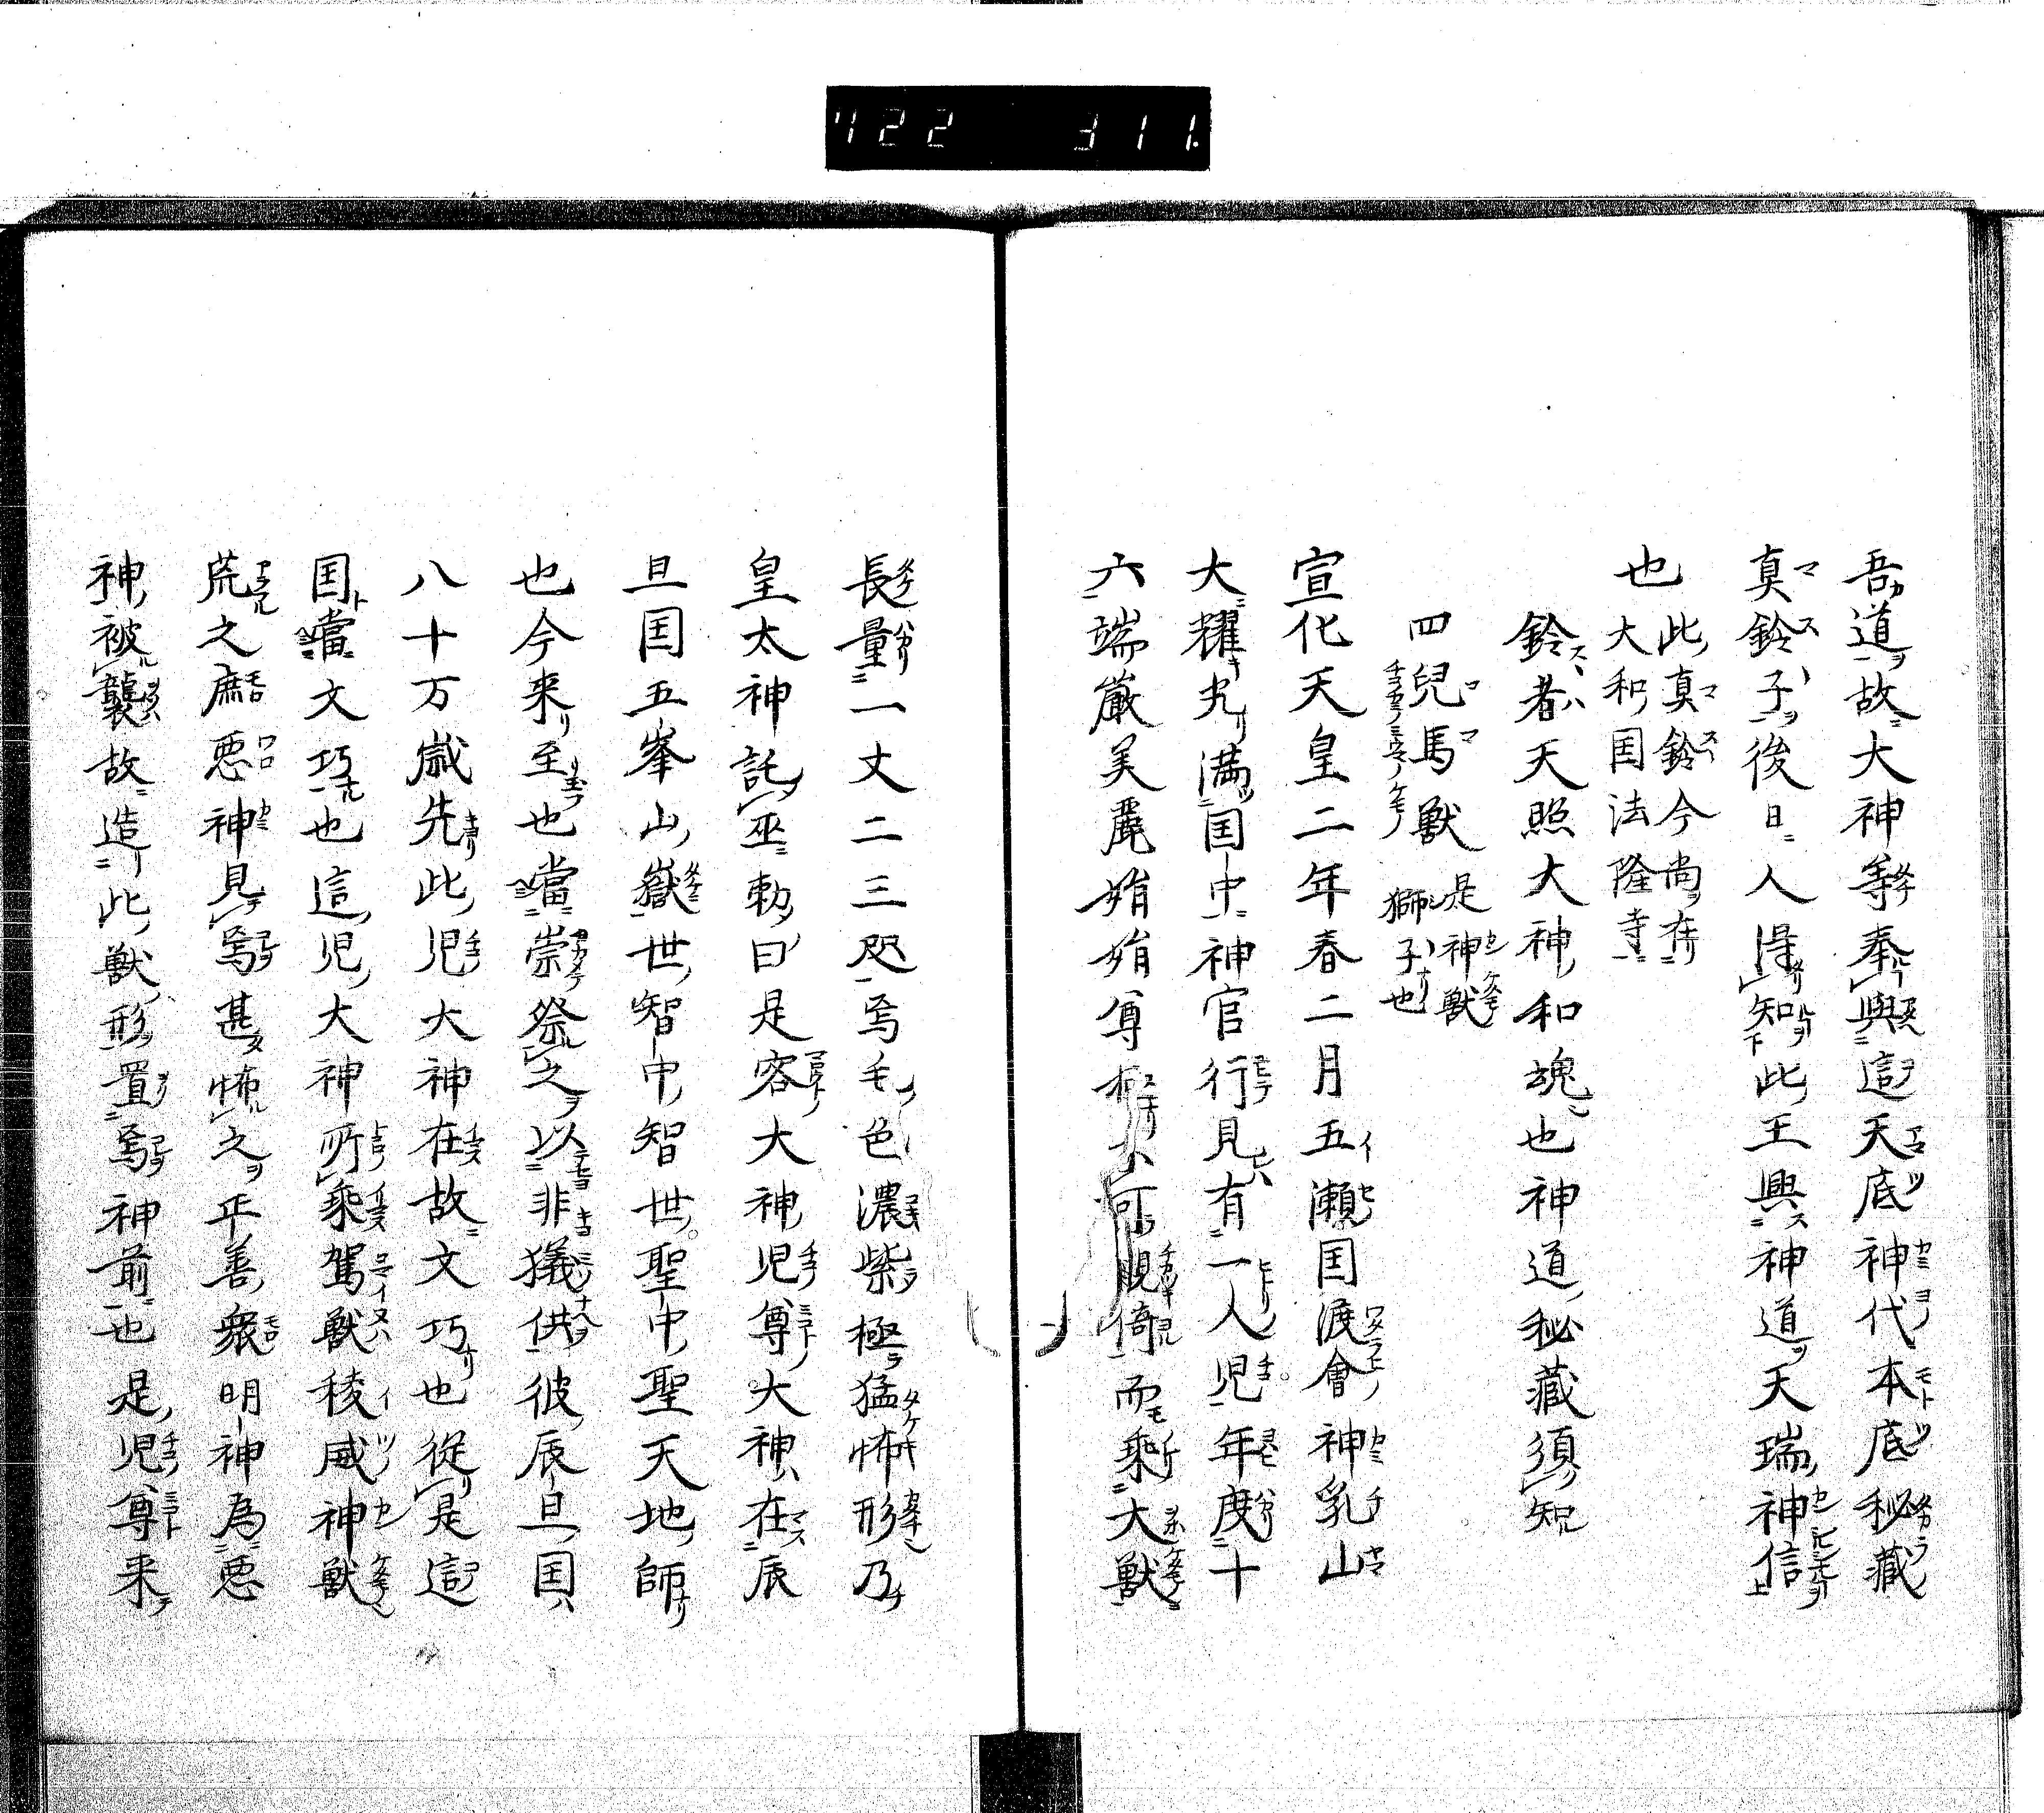 722 311.
吾道故大神等奉與這天底神代本底秘藏
真鈴子後日人得知此王興神道天瑞神信
也
此真鈴今尚在
大和国法隆寺
鈴者天照大神和魂也神道秘藏須知
四兒馬獸
是神獸
獅子也
宣化天皇二年春二月五瀨国渡會神乳山
大耀光滿国中神官行見有一人児年度十
六端嚴美麗
尊
可
倚而乘大獸
長量一丈二三咫焉毛色濃紫極猛怖形乃
皇太神託巫勅曰是容大神児尊大神在辰
旦国五峯山嶽世智中智世聖中聖天地師
也今来至也當崇祭之以非犠供彼辰旦国
八十万歳先此児大神在故文巧也從是這
国當文巧也這児大神所乘駕獸稜威神獸
荒之庶悪神見焉甚怖之平善衆明神為悪
神被襲故造此獸形置焉神前也是児尊来